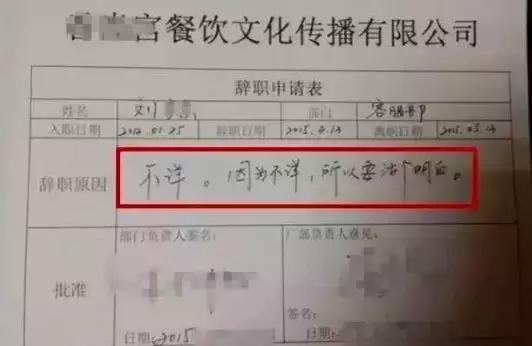 宫餐饮文化传播有限公司
辞职申请表
姓名 刘 部门 客服部
入职日期 2012.01.25 辞职日期 2015.2.13 离职日期 2015.03.13
辞职原因 不详。因为不详，所以要活个明白。
部门负责人签名： 厂部负责人意见：
批准
签名：
日期：2015 日期：